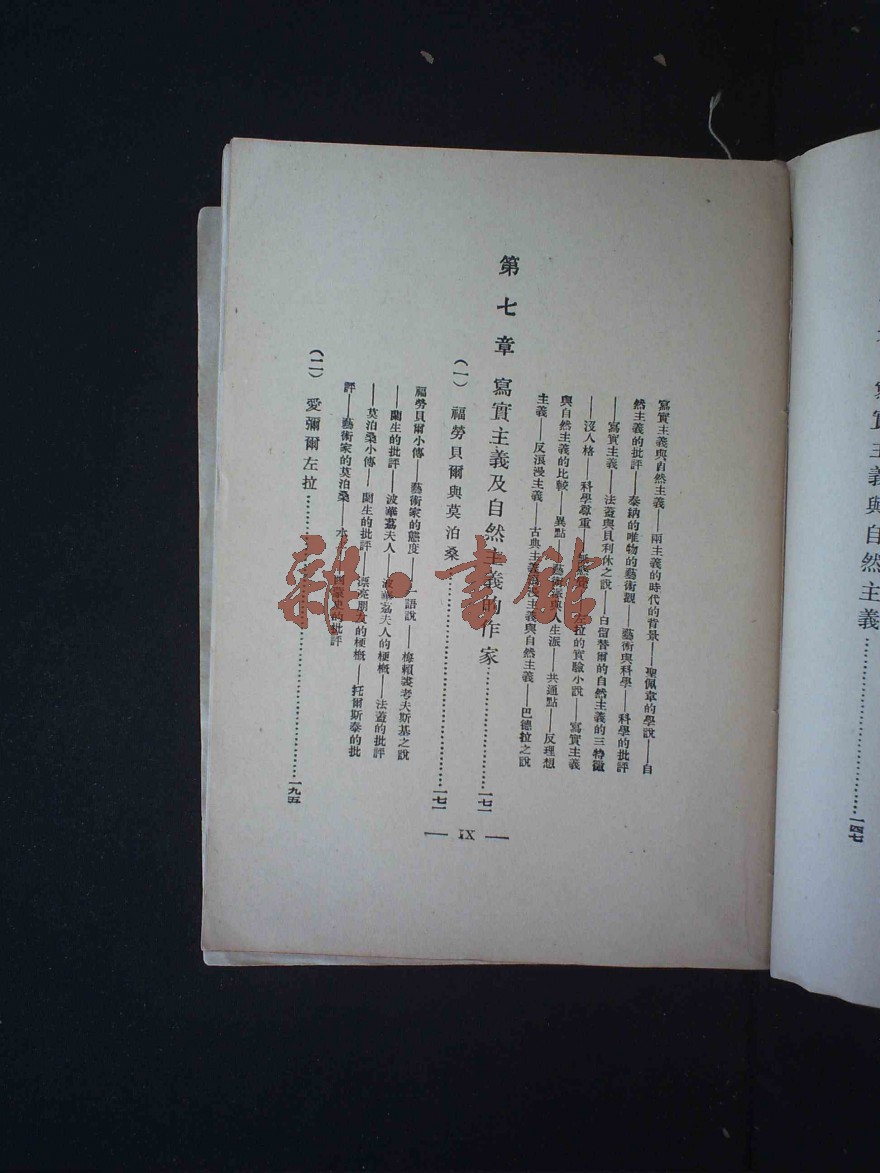 寫實主義與自然主義……一四七
寫實主義與自然主義——兩主義的時代的背景——聖佩韋的學說——自
然主義的批評——泰納的唯物的藝術觀——藝術與科學——科學的批評
——寫實主義——法蓋與貝利休之說——白留替爾的自然主義的三特徵
——沒人格——科學尊重——左拉的實驗小說——寫實主義
與自然主義的比較——異點——藝術派與人生派——共通點——反理想
主義——反浪漫主義——古典主義浪漫主義與自然主義——巴德拉之說
第七章 寫實主義及自然主義的作家……一七一
(一) 福勞貝爾與莫泊桑……一七一
福勞貝爾小傳——藝術家的態度——一語說——梅賴裘考夫斯基之說
——蘭生的批評——波華荔夫人——波華荔夫人的梗概——法蓋的批評
——莫泊桑小傳——蘭生的批評——漂亮朋友的梗概——托爾斯泰的批
評——藝術家的莫泊桑——水的批評
(二) 愛彌爾左拉……一九五
— IX —
雜·書館